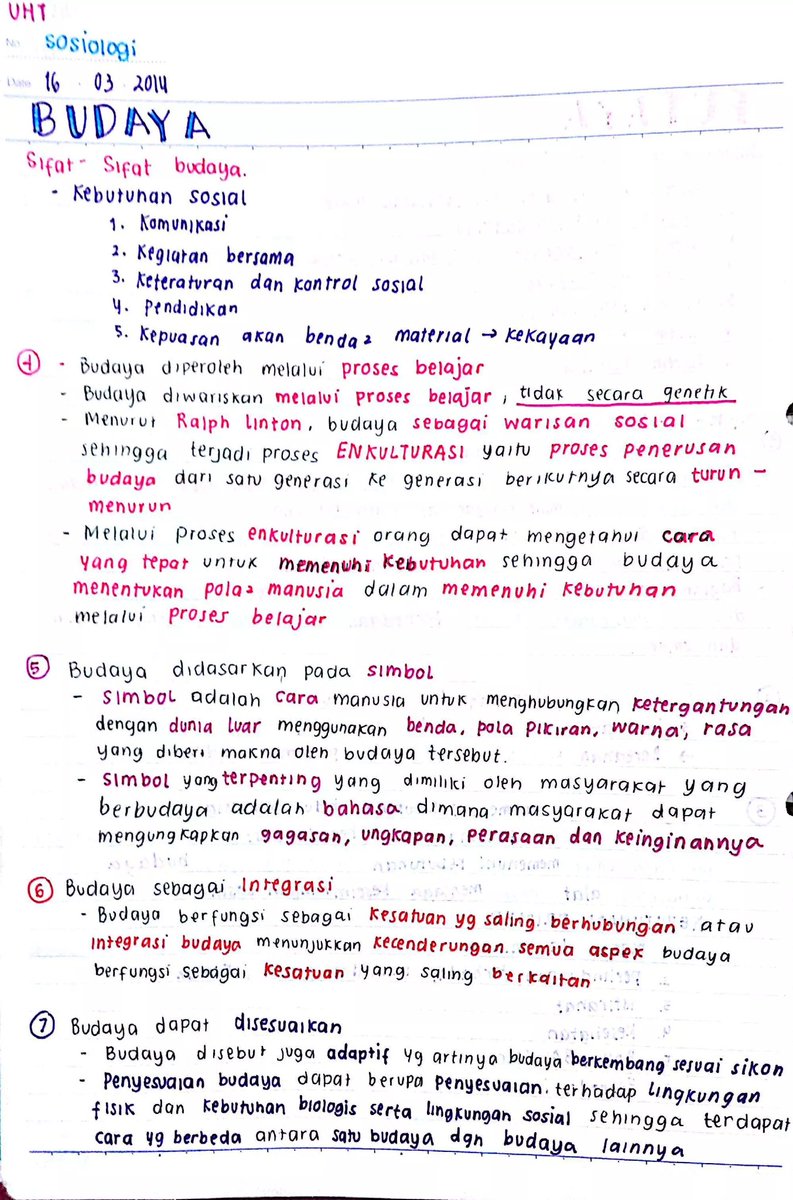 UHT
No. Sosiologi
Date 16 . 03 2014
BUDAYA
Sifat - Sifat budaya.
- Kebutuhan sosial
1. Komunikasi
2. Kegiatan bersama
3. Keteraturan dan kontrol sosial
4. Pendidikan
5. Kepuasan akan benda2 material → kekayaan
④ - Budaya diperoleh melalui proses belajar
- Budaya diwariskan melalui proses belajar, tidak secara genetik
- Menurut Ralph Linton, budaya sebagai warisan sosial
sehingga terjadi proses ENKULTURASI yaitu proses penerusan
budaya dari satu generasi ke generasi berikutnya secara turun -
menurun
- Melalui proses enkulturasi orang dapat mengetahui cara
yang tepat untuk memenuhi kebutuhan sehingga budaya
menentukan pola2 manusia dalam memenuhi kebutuhan
melalui proses belajar
⑤ Budaya didasarkan pada simbol
- Simbol adalah cara manusia untuk menghubungkan ketergantungan
dengan dunia luar menggunakan benda, pola pikiran, warna, rasa
yang diberi makna oleh budaya tersebut.
- Simbol yang terpenting yang dimiliki oleh masyarakat yang
berbudaya adalah bahasa dimana masyarakat dapat
mengungkapkan gagasan, ungkapan, perasaan dan keinginannya
⑥ Budaya sebagai Integrasi
- Budaya berfungsi sebagai kesatuan yg saling berhubungan atau
integrasi budaya menunjukkan kecenderungan semua aspek budaya
berfungsi sebagai kesatuan yang saling berkaitan
⑦ Budaya dapat disesuaikan
- Budaya disebut juga adaptif yg artinya budaya berkembang sesuai sikon
- Penyesuaian budaya dapat berupa penyesuaian terhadap lingkungan
fisik dan kebutuhan biologis serta lingkungan sosial sehingga terdapat
cara yg berbeda antara satu budaya dgn budaya lainnya